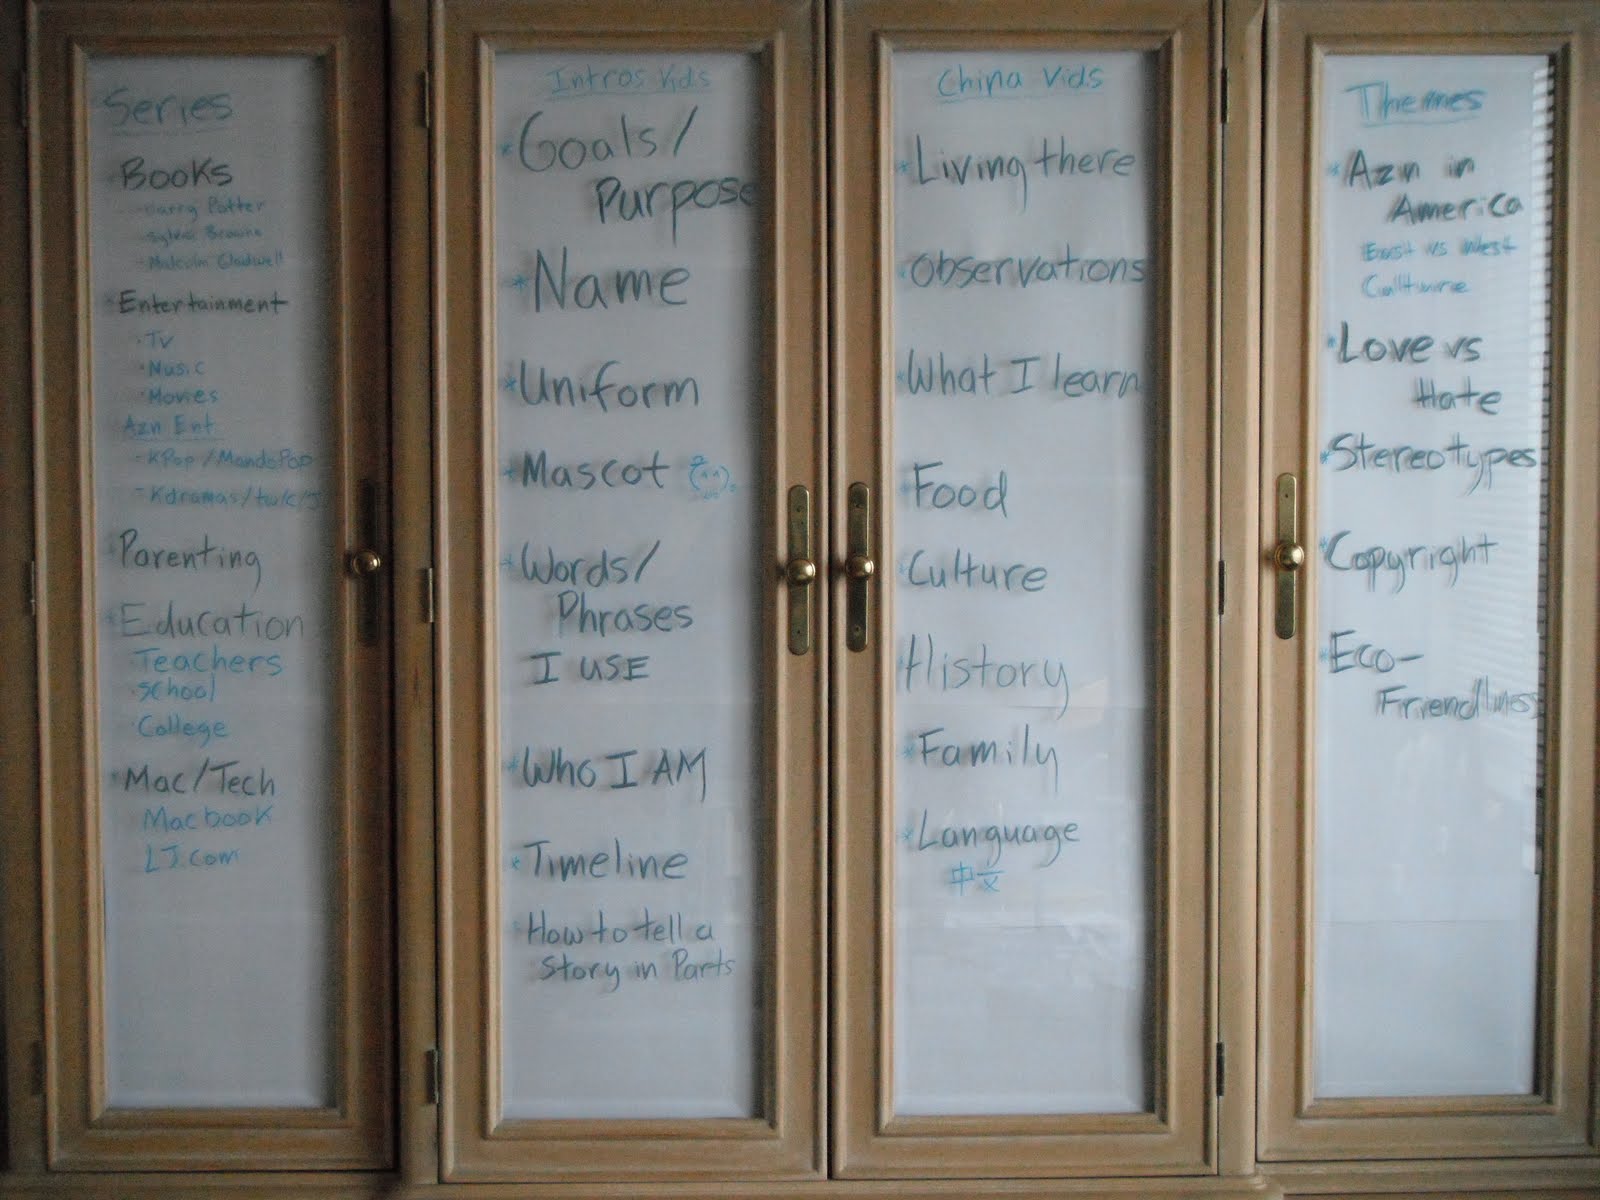 Series
Books
- Harry Potter
- Sylvia Browne
- Malcolm Gladwell
Entertainment
· TV
· Music
· Movies
Azn Ent
- KPop/MandoPop
- Kdramas/tw/c/J
Parenting
Education
Teachers
· School
· College
* Mac/Tech
Macbook
LJ.com
Intros Vids
* Goals/
Purpose
* Name
* Uniform
* Mascot
* Words/
Phrases
I USE
* Who I AM
* Timeline
* How to tell a
Story in Parts
China Vids
* Living there
* Observations
* What I learn
* Food
* Culture
* History
* Family
* Language
中文
Themes
* Azn in
America
East vs West
Culture
* Love vs
Hate
* Stereotypes
* Copyright
* Eco-
Friendliness